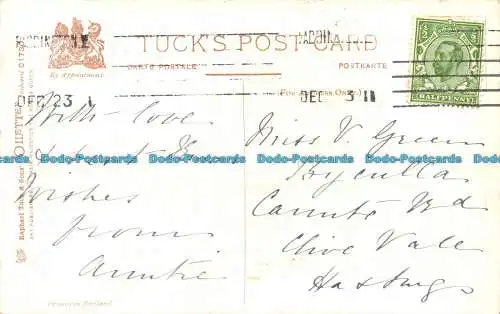 PADDINGTON.W
TUCK'S POST CARD
By Appointment
CARTE POSTALE
POSTKARTE
DEC 23 1
DEC 3 11
HALFPENNY
With love
& best
Wishes
from
Auntie
Miss V. Green
Byculla
Rd
Clive Vale
Hastings
Raphael Tuck & Sons' "OILETTE"
Printed in England
Dodo-Postcards Dodo-Postcards Dodo-Postcards Dodo-Postcards Dodo-Postcards